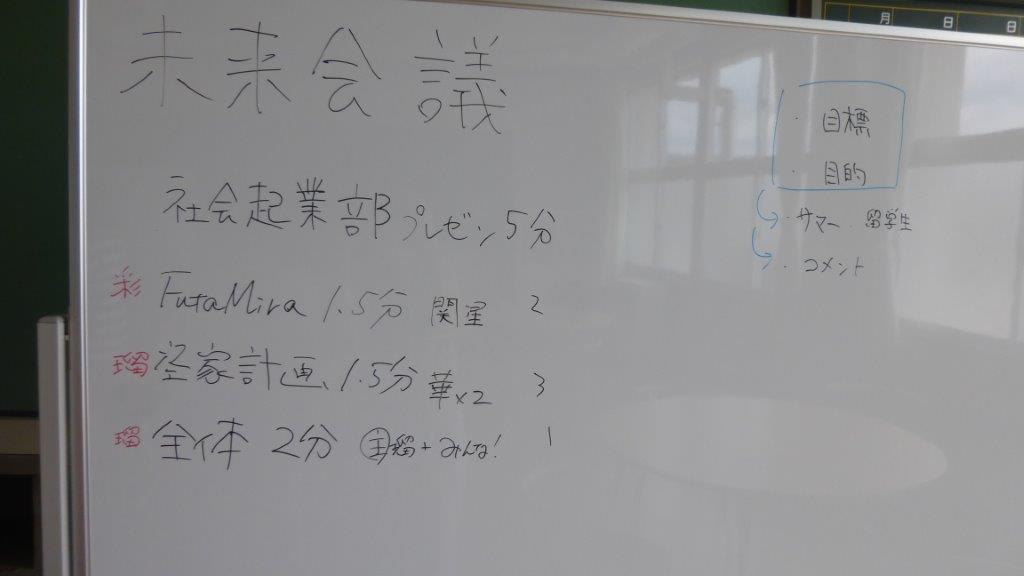 未来会議
社会起業部 プレゼン5分
彩 FutaMira 1.5分 関星 2
瑠 空家計画 1.5分 華×2 3
瑠 全体 2分 主瑠+みんな! 1
・目標
・目的
・サマー・留学生
・コメント
月 日 日